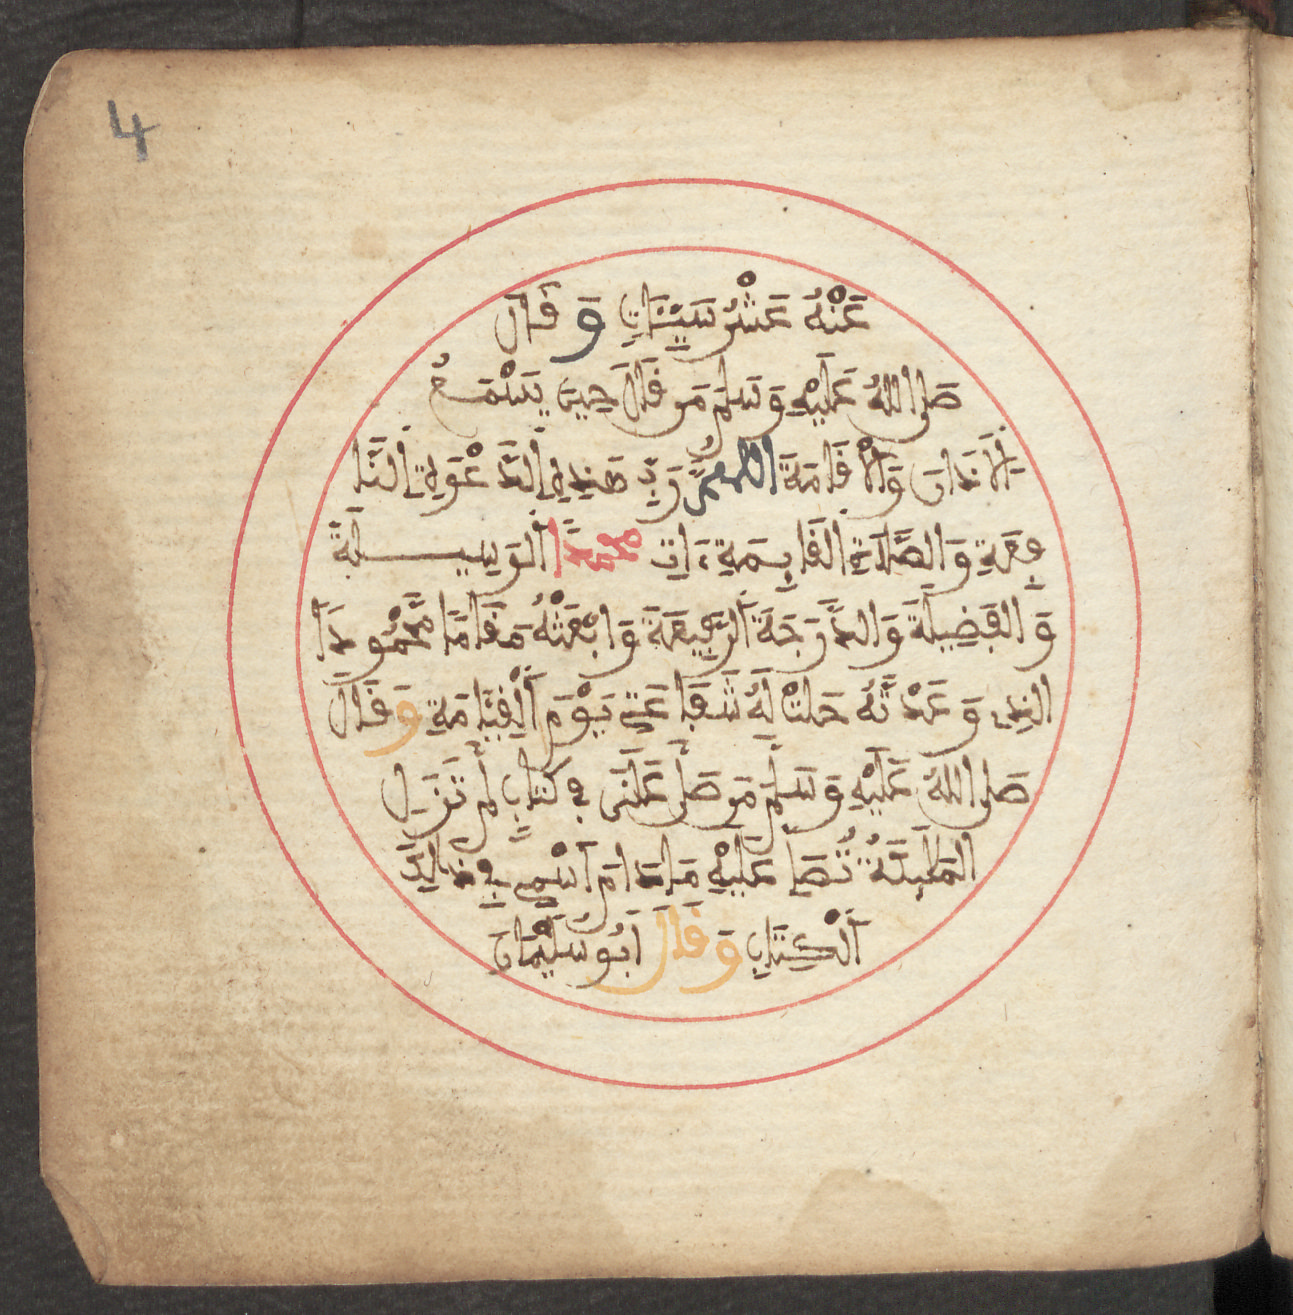 4
عَنْهُ عَشْرُ سَيِّئَاتٍ وَقَالَ
صَلى اللهُ عَلَيْهِ وَسَلمَ مَن قَالَ حِينَ يَسْمَعُ
الاَذَانَ وَالْاقَامَةَ اللهمَّ رَبَّ هَذِهِ الدَّعْوَةِ النَّا
فِعَةِ وَالصَّلَاةِ القَايِمَةِ ءَاتِ محمدًا الوَسِيلَةَ
وَالفَضِيلَةَ وَالدَّرَجَةَ الرَّفِيعَةَ وَابْعَثْهُ مَقَامًا مَّحْمُودًا
الذِى وَعَدْتَّهُ حَلتْ لَهُ شَفَاعَتِى يَوْمَ الْقِيَامَةِ وَقَالَ
صَلى اللهُ عَلَيْهِ وَسَلمَ مَن صَلَّى عَلَىَّ فِى كِتَابٍ لَمْ تَزَلِ
المَلَيِكَةُ تُصَلِّى عَلَيْهِ مَا دَامَ اسْمِى فِى ذَالِكَ
الْكِتَابِ وَقَالَ أَبُو سُلَيْمَانَ